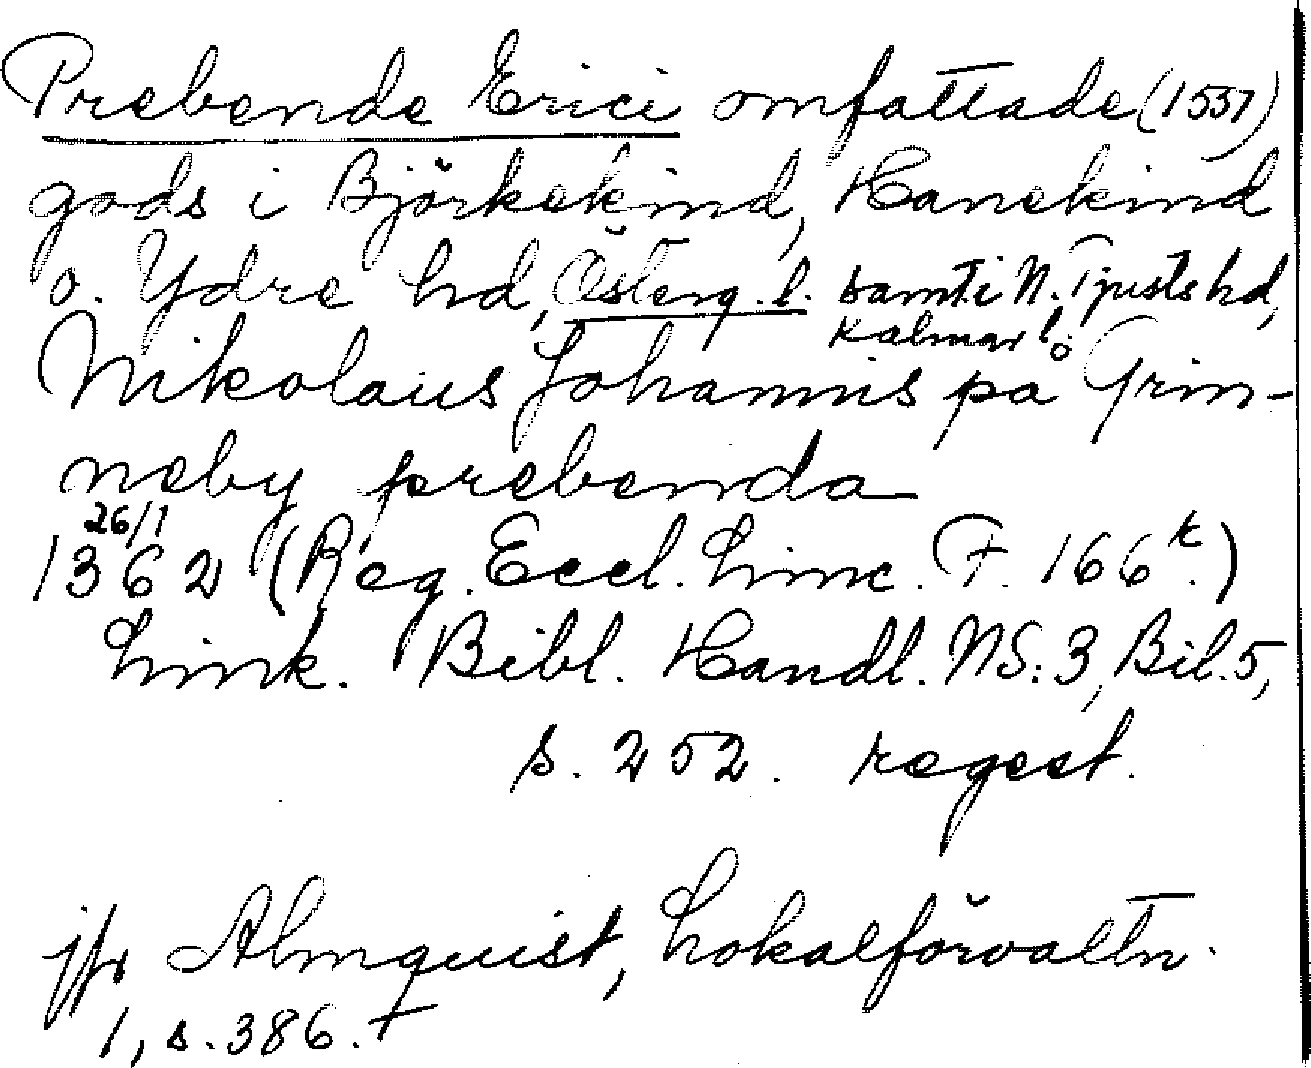 Prebende Erici omfattade (1557)
gods i Björkekind, Hanekind
o. Ydre hd, Österg. l. samt i N. Tjusts hd,
Kalmar l.
Nikolaus Johannis på Grin-
neby prebenda
26/1
1362 (Reg. Eccl. Linc. F. 166)
Link. Bibl. Handl. NS: 3, Bil. 5,
s. 252. regest.
jfr Almquist, Lokalförvaltn.
1, s. 386.